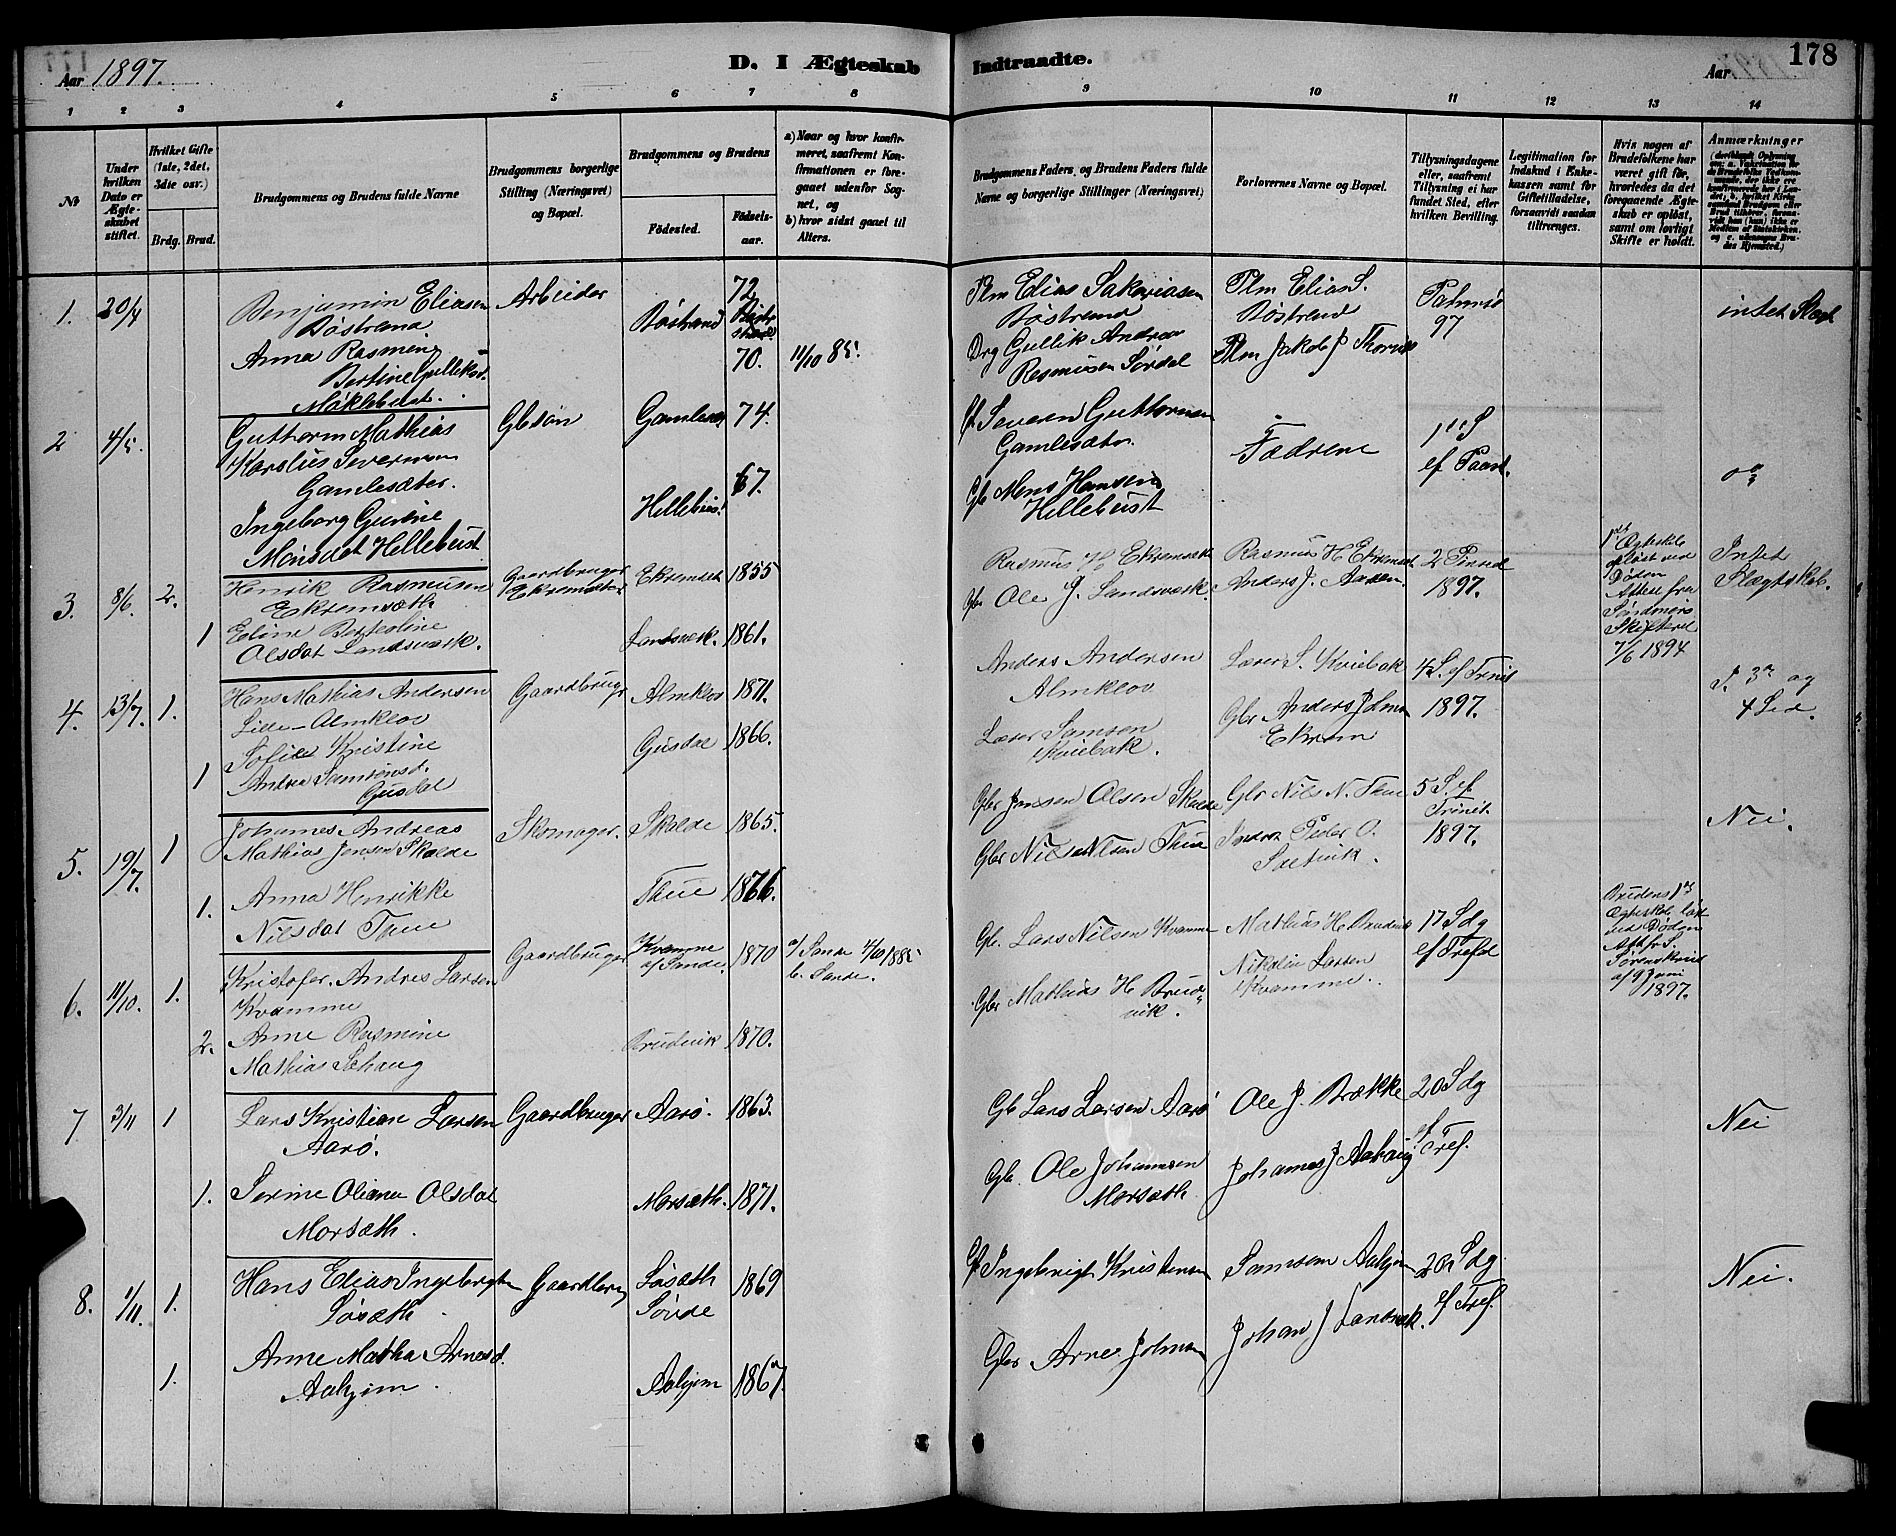 Aar 1897.
D. I Ægteskab Indtraadte.
Aar
178
1 2 3 4 5 6 7 8 9 10 11 12 13 14
№
Under hvilken Dato er Ægteskabet stiftet.
Hvilket Gifte (1ste, 2det, 3die osv.)
Brdg. Brud.
Brudgommens og Brudens fulde Navne
Brudgommens borgerlige Stilling (Næringsvei) og Bopæl.
Brudgommens og Brudens
Fødested.
Fødselsaar.
a) Naar og hvor konfirmeret, saafremt Konfirmationen er foregaaet udenfor Sognet, og
b) hvor sidst gaaet til Alters.
Brudgommens Faders, og Brudens Faders fulde Navne og borgerlige Stillinger (Næringsvei)
Forlovernes Navne og Bopæl.
Tillysningsdagene eller, saafremt Tillysning ei har fundet Sted, efter hvilken Bevilling.
Legitimation for Indskud i Enkekassen samt for Giftetilladelse, forsaavidt saadan tiltrænges.
Hvis nogen af Brudefolkene har været gift før, hvorledes da det foregaaende Ægteskab er opløst, samt om lovligt Skifte er holdt.
Anmærkninger
1. 20/4
Benjamin Eliasen
Bøstrand
Arbeider
Bøstrand
72
Plm Elias Sakariasen
Bøstrand
Plm Elias S.
Bøstrand
97
intet Slægt
Anna Rasmine
Bertine Gulleksd.
Møklebust.
70.
11/10 85.
Drg Gullik Andreas
Rasmusen Sørdal
Plm Jakob J
2 4/5.
Guttorm Mathias
Karolius Severinsen
Gamlesæter.
Gbsøn
74.
Gamlesæter
Fædrene
1ste S
ef Paask.
Ingeborg Gurine
Monsdat Hellebust
67.
Gb Mons Hansen
Hellebust
3. 8/6 2.
Henrik Rasmusen
Ekremsæth
Gaardbruger
Ekremsæter
Ekremset 1855
Rasmus H. Ekremsæth
Rasmus H Ekremset
2 Pinsed
1897.
1ste Ægteskab
opløst ved
Døden
Attest fra
Søndmørs
Skifteret
7/6 1894
Intet
Slægtskab.
1
Eline Berteoline
Olsdat Landsværk.
Landsværk. 1861.
Gbr Ole J. Landsværk.
Anders J. Aasen.
4. 13/7. 1.
Hans Mathias Andersen
Lille-Almklov
Gaardbruger
Almklov 1871.
Anders Andersen
Almklov
Lærer S. Kviebak
4 S. ef Trinit
1897.
J. 3die og
4 Led.
1
Sofie Kristine
Andrea Samsonsd.
Gusdal
Gusdal 1866.
Lærer Samson
Kviebak.
Gbr Anders Johnsen
Ekrem
5. 19/7. 1
Johannes Andreas
Mathias Jensen Skolde
Skomager.
Skolde 1865.
Gbr Jensen Olsen Skolde
Gbr Nils N. Thue
5 S. ef
Trinit.
1897.
Nei.
1.
Anna Henrikke
Nilsdat Thue
Thue 1876.
Gbr Nils Nilsen Thue
Peder O.
6. 11/10. 1.
Kristofer Andres Larsen
Kvamme
Gaardbruger
Kvamme
af Sande. 1870
a/ Sande 4/10 1885
b. Sande.
Gb. Lars Nilsen Kvamme
Mathias H. Brudevik
17 Sdg
ef Trefd
Brudens 1ste
Ægteskab løst
ved Døden
Att fr S.
Sørenskriver
af 9 Juni
1897.
2.
Anne Rasmine
Mathias Sehaug
Brudevik 1870.
Gbr Mathias H Brude-
vik.
Nikolai Larsen
Kvamme.
7 3/11 1
Lars Kristian Larsen
Aarø.
Gaardbruger
Aarø. 1863.
Gb Lars Larsen Aarø
Ole J. Brække
20 Sdg
ef
Tref.
Nei
1.
Serine Oliane Olsdat
Morsæth.
Morsæth. 1871.
Gb. Ole Johannsen
Morsæth
Johannes J Aahaug
8. 1/11 1.
Hans Elias Ingebrigtsen
Søsæth
Gaardbrug
Søsæth
Søvde 1869
Gf Ingebrigt Kristensen
Samson Aahjem
20 Sdg
ef Tref.
Nei.
1.
Anne Matha Arnesd.
Aahjem.
Aahjem 1867.
Gbr Arne Johnsen
Johan J Landsværk.